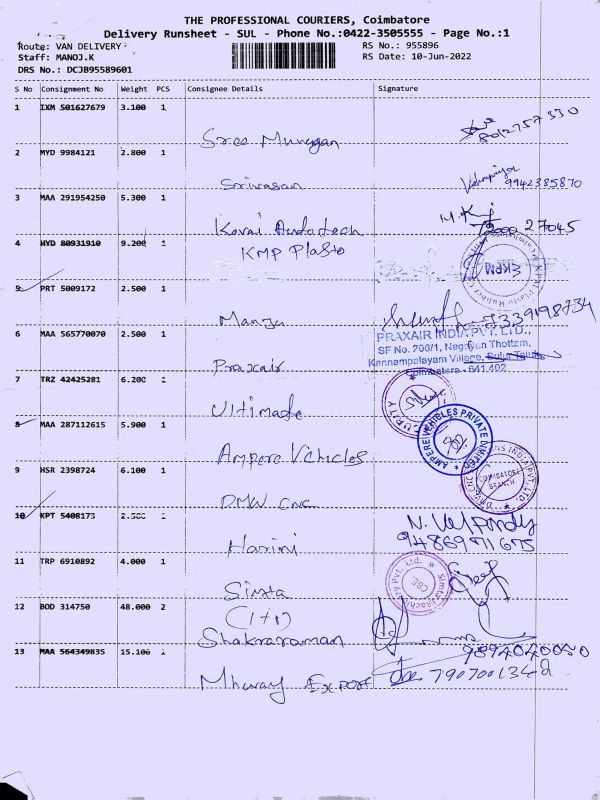 THE PROFESSIONAL COURIERS, Coimbatore
Delivery Runsheet - SUL - Phone No.:0422-3505555 - Page No.:1
Route: VAN DELIVERY
RS No.: 955896
Staff: MANOJ.K
RS Date: 10-Jun-2022
DRS No.: DCJB95589601
S No Consignment No Weight PCS Consignee Details Signature
1 IXM 501627679 3.100 1
Sree Murugan 8012757330
2 MYD 9984121 2.800 1
Srivasan 9942385870
3 MAA 291954250 5.300 1
Kovai Autotech 27045
4 HYD 80931910 9.200 1
KMP Plasto
KPM
5 PRT 5009172 2.500 1
Manju 7339198734
6 MAA 565770070 2.500 1
PRAXAIR INDIA PVT. LTD.,
SF No. 206/1, Nagayan Thottam,
Kannampalayam Village, Sulur Taluk
Coimbatore - 641 402
Praxair
7 TRZ 42425281 6.200 1
Ultimate
8 MAA 287112615 5.900 1
AMPERE VEHICLES PRIVATE LIMITED
Ampere Vehicles
9 HSR 2398724 6.100 1
COIMBATORE
BRANCH
DMW CNC
10 KPT 5408173 2.500 1
N. Velpandy
9486971675
Harini
11 TRP 6910892 4.000 1
Pvt. Ltd.
CBE
Simta
12 BOD 314750 48.000 2
(1+1)
Shakraraman 9894040050
13 MAA 564349835 15.100 1
Export 7907001342